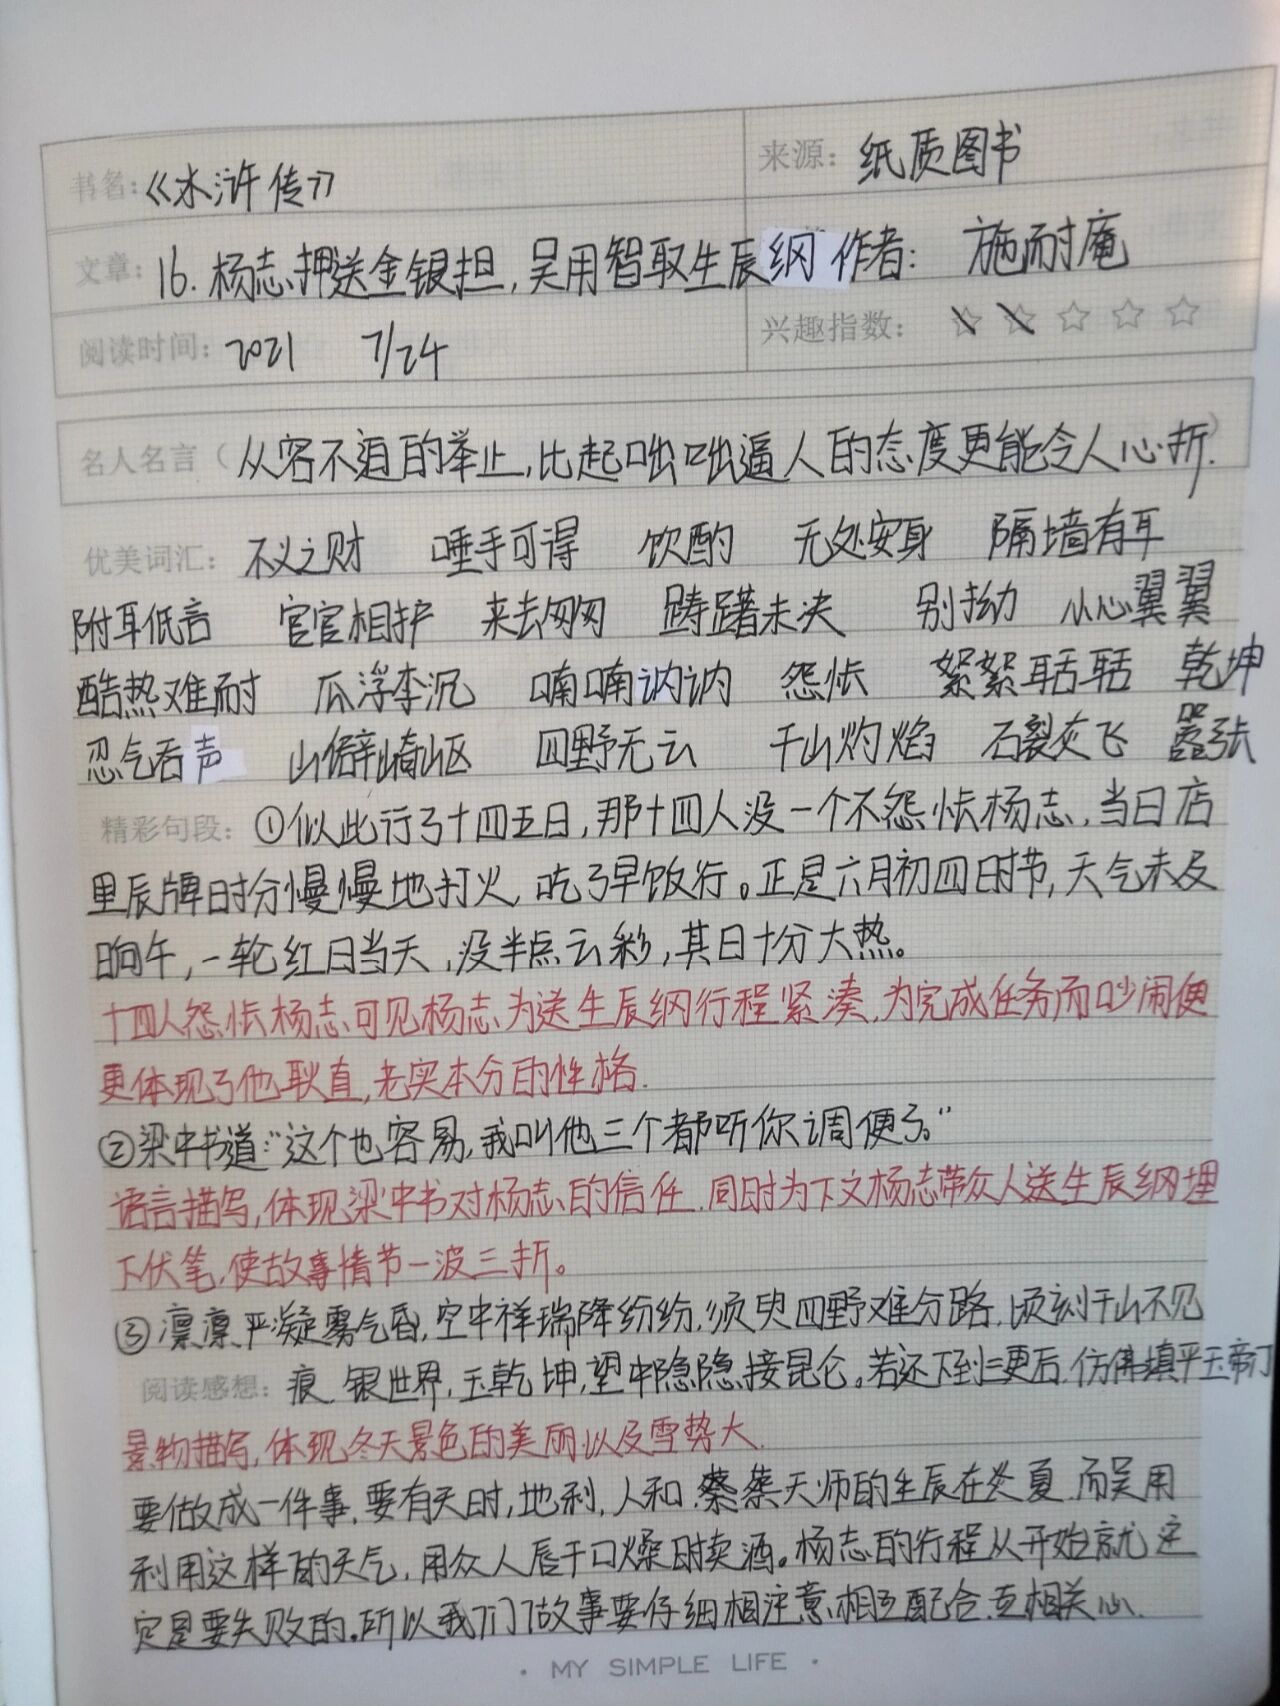 书名：《水浒传》
来源：纸质图书
文章：16.杨志押送金银担，吴用智取生辰纲 作者：施耐庵
阅读时间：2021 7/24
兴趣指数：☆☆☆☆☆
名人名言（从容不迫的举止，比起咄咄逼人的态度更能令人心折.）
优美词汇：不义之财 唾手可得 饮酌 无处安身 隔墙有耳
附耳低言 官官相护 来去匆匆 踌躇未决 别拗 小心翼翼
酷热难耐 瓜浮李沉 喃喃讷讷 怨怅 絮絮聒聒 乾坤
忍气吞声 山僻崎岖 四野无云 千山灼焰 石裂灰飞 嚣张
精彩句段：①似此行了十四五日，那十四人没一个不怨怅杨志，当日店
里辰牌时分慢慢地打火，吃了早饭行。正是六月初四日时节，天气未及
晌午，一轮红日当天，没半点云彩，其日十分大热。
十四人怨怅杨志可见杨志为送生辰纲行程紧凑，为完成任务而吵闹便
更体现了他耿直，老实本分的性格.
②梁中书道：“这个也容易，我叫他三个都听你调便了。”
语言描写，体现梁中书对杨志的信任.同时为下文杨志带众人送生辰纲埋
下伏笔，使故事情节一波三折。
③凛凛严凝雾气昏，空中祥瑞降纷纷，须臾四野难分路，顷刻千山不见
阅读感想：痕.银世界，玉乾坤，望中隐隐接昆仑。若还下到三更后，仿佛填平玉帝门
景物描写，体现冬天景色的美丽以及雪势大.
要做成一件事，要有天时，地利，人和.蔡天师的生辰在炎夏.而吴用
利用这样的天气，用众人唇干口燥时卖酒。杨志的行程从开始就注
定是要失败的。所以我们做故事要仔细相注意，相互配合，互相关心.
· MY SIMPLE LIFE ·